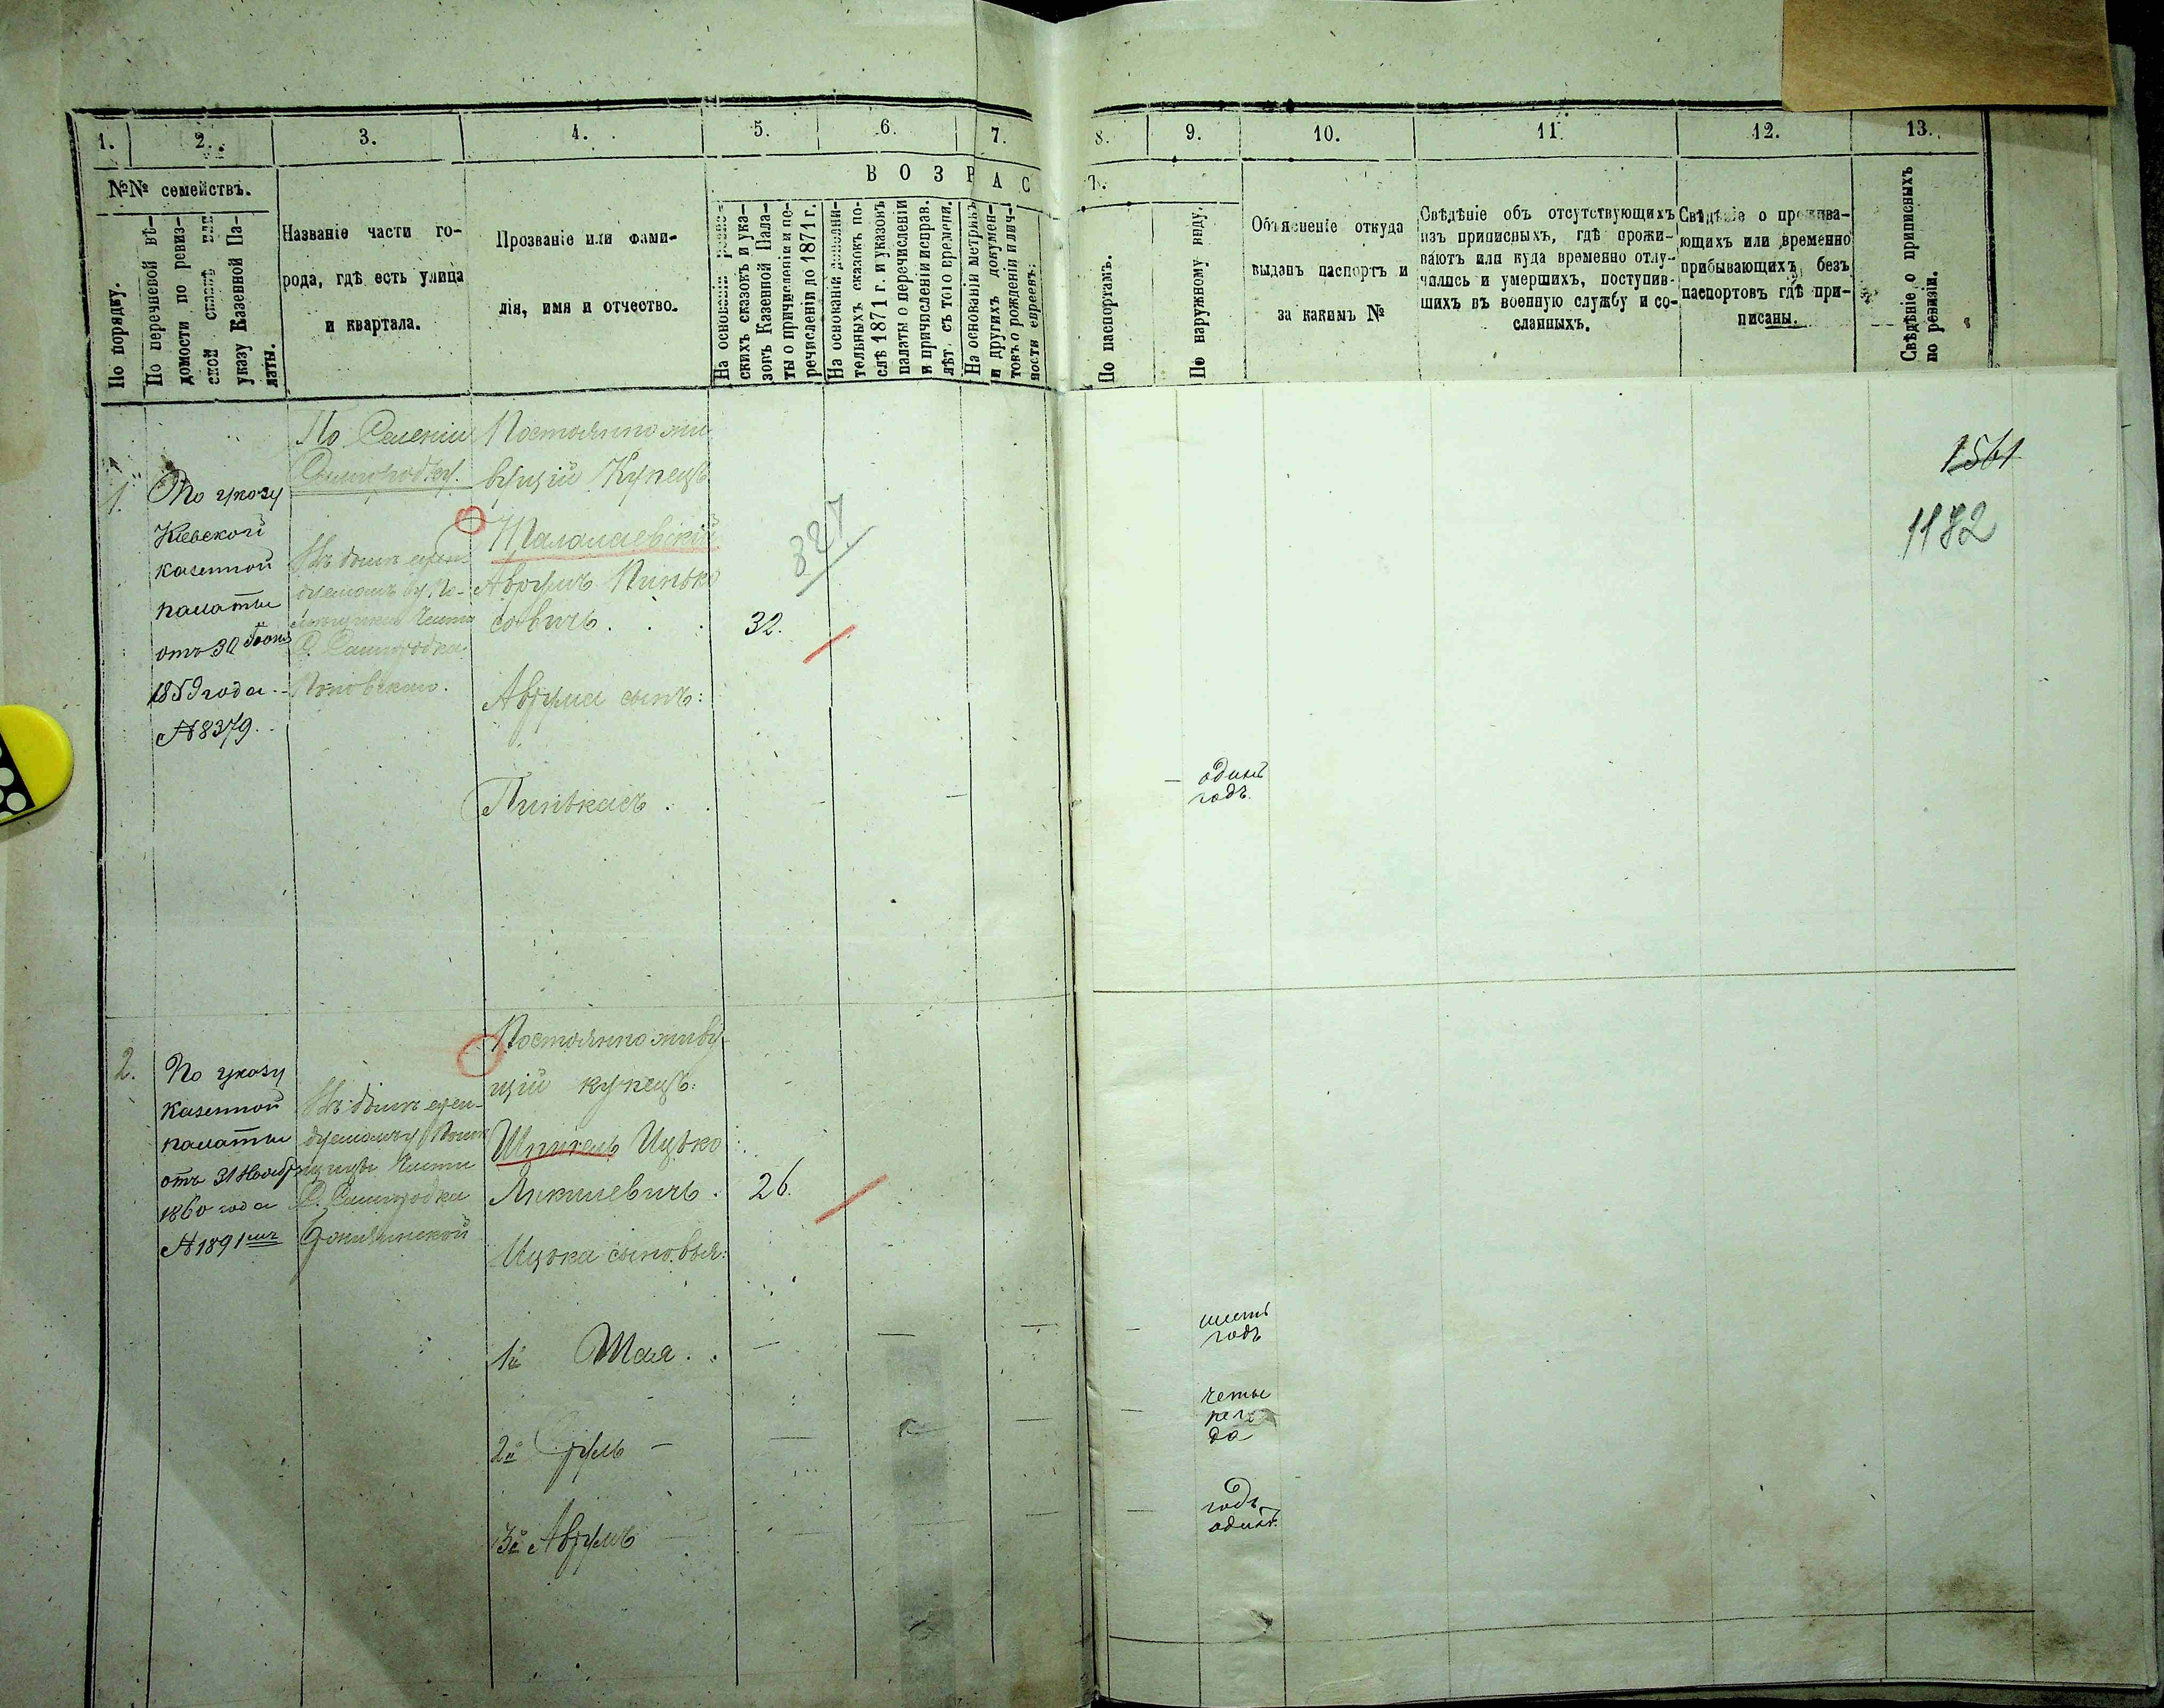 1.
2.
3.
4.
5.
6.
7.
8.
9.
10.
11.
12.
13.
№№ семействъ.
По порядку.
По перечневой вѣ-
домости по ревиз-
ской сказкѣ или
указу Казенной Па-
латы.
Названіе части го-
рода, гдѣ есть улица
и квартала.
Прозваніе или фами-
лія, имя и отчество.
ВОЗРАС
Т.
На основаніи ревиз-
скихъ сказокъ и ука-
зовъ Казенной Пала-
ты о причисленіи и пе-
речисленіи до 1871 г.
На основаніи дополни-
тельныхъ сказокъ по-
слѣ 1871 г. и указовъ
палаты о перечисленіи
и причисленіи исправ.
лѣт. съ того времени.
На основаніи метрикъ
и другихъ докумен-
товъ о рожденіи и лич-
ности евреевъ.
По паспортамъ.
По наружному виду.
Объясненіе откуда
выданъ паспортъ и
за какимъ №
Свѣдѣніе объ отсутствующихъ
изъ приписныхъ, гдѣ прожи-
ваютъ или куда временно отлу-
чились и умершихъ, поступив-
шихъ въ военную службу и со-
сланныхъ.
Свѣдѣніе о прожива-
ющихъ или временно
прибывающихъ безъ
паспортовъ гдѣ при-
писаны.
Свѣдѣніе о приписныхъ
по ревизіи.
1561
1182
1.
По указу
Кіевской
казенной
палаты
отъ 30
1859 года
№ 8379.
По Селенію
Самгородку.
С. Самгородка
Постоянно жи
вущій Купецъ
Талалаевскій
Аврумъ Пинько
совичъ . . .
32.
327
Аврума сынъ:
Пинькасъ . .
одинъ
годъ.
2.
По указу
казенной
палаты
отъ 31 Ноябр
1860 года
№ 1891
части
С. Самгородка
Постоянно живу-
щій купецъ:
Шпигель Ицько
Янкилевичъ .
26.
Ицька сыновья:
1й Шая . .
шесть
годъ
2й Сруль –
четы
ре го
да
3й Аврумъ
годъ
одинъ.